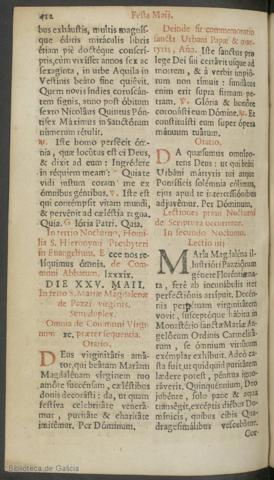 412 Festa Maij.
bus exhaustis, multis magnis-
que éditis miráculis labori
étiam piè doctéque conscri-
ptis, cùm vixísset annos sex ac
sexaginta, in urbe Aquila in
Vestinis beáto fine quiévit.
Quem novis índies coruscán-
tem signis, anno post óbitum
sexto Nicolâus Quintus Pón-
tifex Maximus in Sanctórum
númerum rétulit.
℣. Iste homo perféit óm-
nia, quæ locútus est ei Deus,
& dixit ad eum: Ingrédere
in réquiem meam: * Quia te
vidi justum coram me ex
ómnibus géntibus. ℣. Iste est
qui contémpsit vitam mundi,
& pervénit ad cælestia regna.
Quia. Glória Patri. Quia.
In tertio Nocturno, Homi-
lia S. Hieronymi Presbyteri
in Evangelium. Ecce nos re-
líquimus ómnia, de Com-
muni Abbatum. lxxxix.
DIE XXV. MAII.
In festo S. Mariæ Magdalenæ
de Pazzi virginis.
Semiduplex.
Omnia de Communi Virgi-
num xc. præter sequentia.
Oratio.
Deus virginitátis amá-
tor, qui beátam Maríam
Magdalénam vírginem tuo
amóre succénsam, cæléstibus
donis decorásti: da, ut quam
festiva celebritáte venerá-
mur, puritáte & charitáte
imitémur. Per Dóminum.
Deinde fit commemoratio
sancti Urbani Papæ & mar-
tyris, Aña. Iste sanctus pro
lege Dei sui certávit usque ad
mortem, & à verbis impió-
rum non timuit: fundátus
enim erat supra firmam pe-
tram. ℣. Glória & honóre
coronásti eum Dómine. ℟. Et
constituísti eum super ópera
mánuum tuárum.
Oratio.
DA quæsumus omnípo-
tens Deus: ut qui beáti
Urbáni mártyris tui atque
Pontíficis solémnia cólimus,
ejus apud te intercessiónibus
adjuvémur. Per Dóminum.
Lectiones primi Nocturni
de Scriptura occurrente.
In secundo Nocturno.
Lectio iiij
MAría Magdaléna il-
lústri Pazziórum
génere Floréntiæ na-
ta, ferè ab incunábulis iter
perfectiónis arrípuit. Decén-
nis perpétuam virginitátem
vovit, susceptóque hábitu in
Monastério sanctæ Maríæ An-
gelórum Ordinis Carmelitá-
rum, se ómnium virtútum
exémplar exhíbuit. Adeò ca-
sta fuit, ut quidquid puritátem
lædere potest, pénitus ignó-
ráverit. Quinquénnium, Deo
jubénte, solo pane & aqua
transégit, excéptis diébus Do-
mínicis, quibus cibis Qua-
dragesimálibus vescebátur.
Cor-
Biblioteca de Galicia